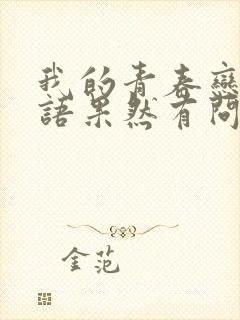 我的青春戀
語果然有問
金范